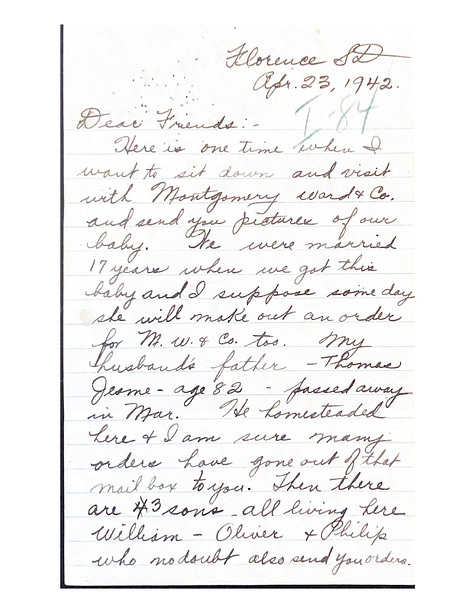 Florence SD
Apr. 23, 1942.
I-84
Dear Friends:-
Here is one time when I
want to sit down and visit
with Montgomery Ward & Co.
and send you pictures of our
baby. We were married
17 years when we got this
baby and I suppose some day
she will make out an order
for M. W. & Co. too. My
husband's father - Thomas
Jesme - age 82 - passed away
in Mar. He homesteaded
here & I am sure many
orders have gone out of that
mail box to you. Then there
are 3 sons - all living here
William - Oliver & Philip
who no doubt also send you orders.